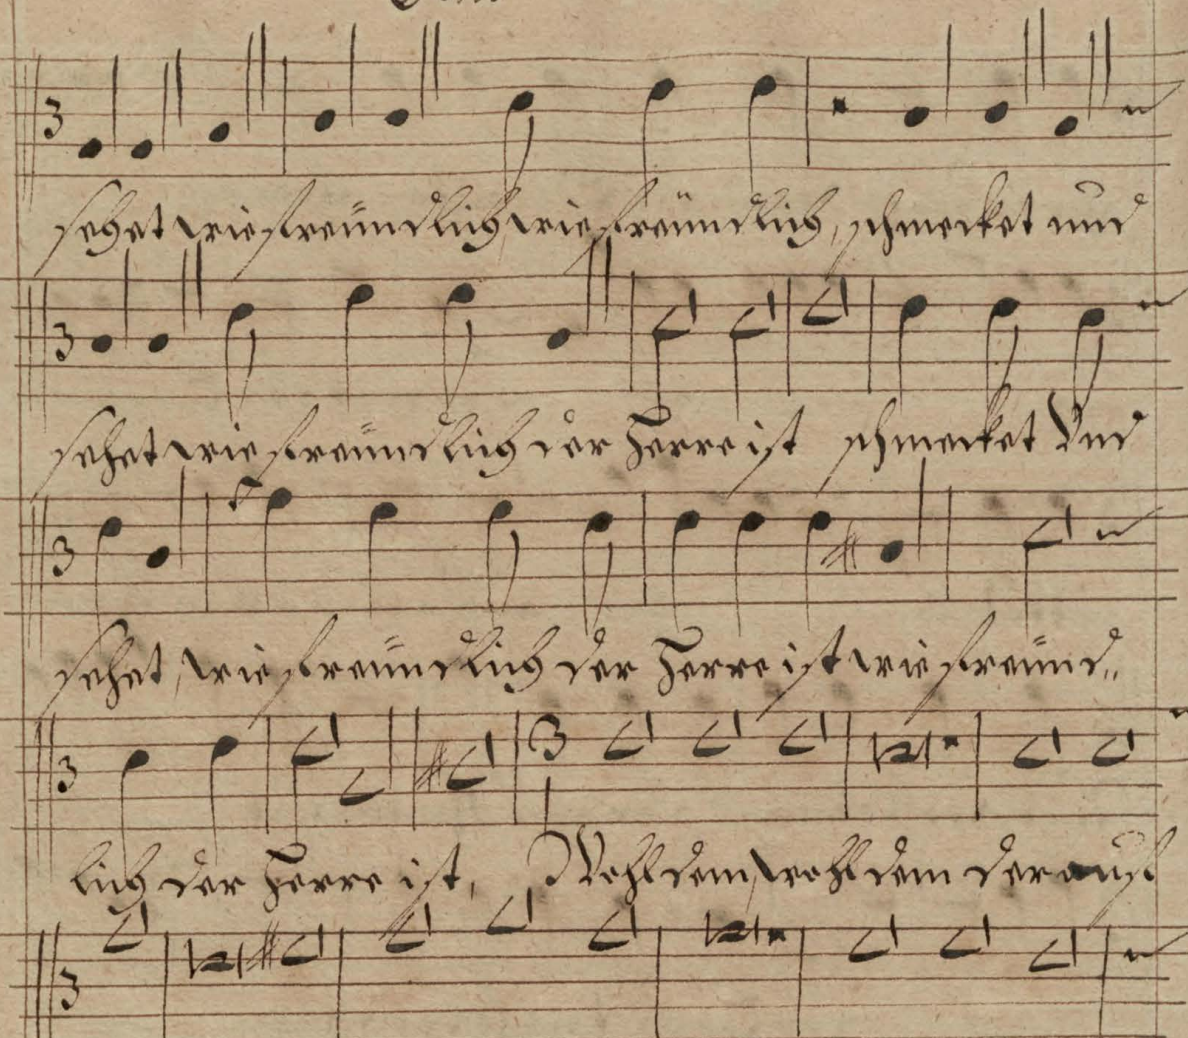 sehet wie freündlich, wie freündlich, schmecket und
sehet wie freündlich der Herre ist schmecket Vnd
sehet, wie freündlich der Herre ist wie freünd„
lich der Herre ist, Wohl dem, wohl dem der auf